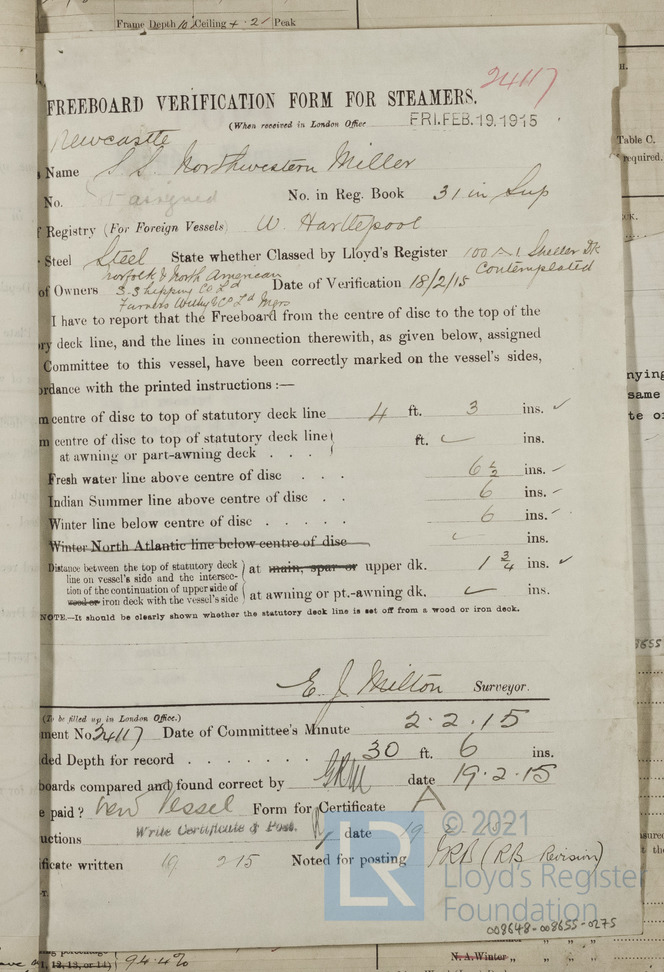 Frame Depth 10 Ceiling 4·2 Peak
24117
FREEBOARD VERIFICATION FORM FOR STEAMERS.
(When received in London Office FRI. FEB. 19. 1915
Newcastle
Name S.S. Northwestern Miller
No. assigned No. in Reg. Book 31 in Sup
Registry (For Foreign Vessels) W. Hartlepool
Steel Steel State whether Classed by Lloyd's Register 100 A 1. Shelter Dk
Contemplated
Norfolk & North American
of Owners S-Shipping Co. Ld Date of Verification 18/2/15
Furness Withy & Co Ld Mgrs
I have to report that the Freeboard from the centre of disc to the top of the
ry deck line, and the lines in connection therewith, as given below, assigned
Committee to this vessel, have been correctly marked on the vessel's sides,
rdance with the printed instructions :—
m centre of disc to top of statutory deck line 4 ft. 3 ins. ✓
m centre of disc to top of statutory deck line
at awning or part-awning deck . . . ft. ✓ ins.
Fresh water line above centre of disc . . . 6 ½ ins. ✓
Indian Summer line above centre of disc . . 6 ins. ✓
Winter line below centre of disc . . . . . 6 ins. ✓
Winter North Atlantic line below centre of disc ✓ ins.
Distance between the top of statutory deck
line on vessel's side and the intersec- at main, spar or upper dk. 1 ¾ ins. ✓
tion of the continuation of upper side of
wood or iron deck with the vessel's side at awning or pt.-awning dk. ✓ ins.
NOTE.—It should be clearly shown whether the statutory deck line is set off from a wood or iron deck.
E. J. Milton Surveyor.
(To be filled up in London Office.)
ment No 24117 Date of Committee's Minute 2·2·15
ded Depth for record . . . . . . . 30 ft. 6 ins.
oards compared and found correct by GRM date 19·2·15
e paid? New Vessel Form for Certificate A
uctions Write Certificate & Post. date 19
ficate written 19 2 15 Noted for posting GRB (RB Revision)
r.
LR
© 2021
Lloyd's Register
Foundation
008648-008655-0275
Table C.
required.
nying
same
te o
8655
12, 13, or 14) 94·4%
N. A. Winter